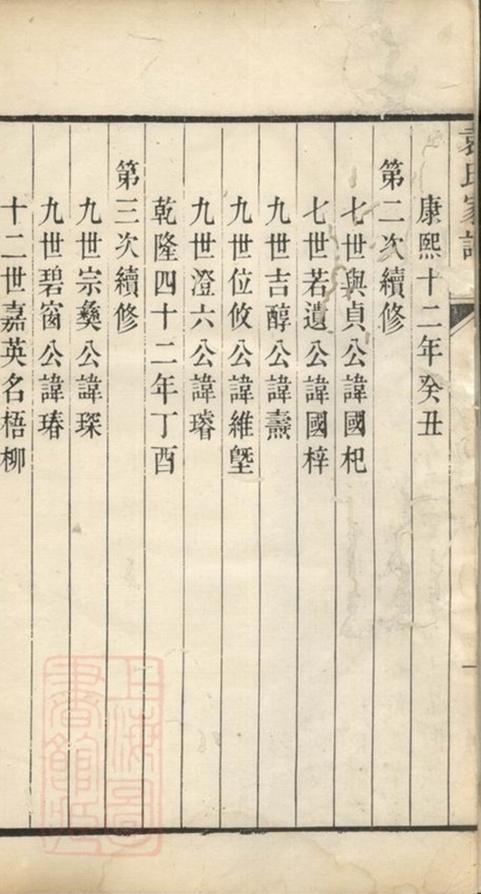 袁氏家譜
康熙十二年癸丑
第二次續修
七世與貞公諱國杞
七世若遺公諱國梓
九世吉醇公諱燾
九世位攸公諱維墍
九世澄六公諱璿
乾隆四十二年丁酉
第三次續修
九世宗彝公諱琛
九世碧窗公諱瑃
十二世嘉英名梧柳
上海圖書館藏